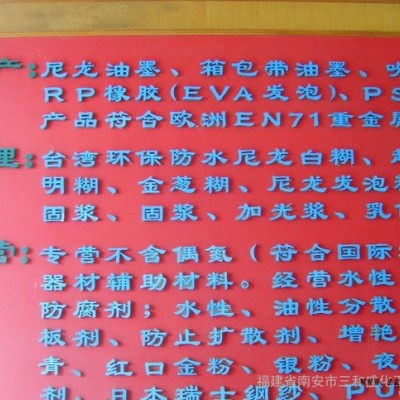 产:尼龙油墨、箱包带油墨、
RP橡胶(EVA发泡)、PS
产品符合欧洲EN71重金属
里:台湾环保防水尼龙白糊、
明糊、金葱糊、尼龙发泡
固浆、固浆、加光浆、乳
营:专营不含偶氮(符合国际
器材辅助材料。经营水性
防腐剂;水性、油性分散
板剂、防止扩散剂、增艳
青、红口金粉、银粉、夜
剂、日本瑞士纲纱、PU
福建省南安市三和盛化工